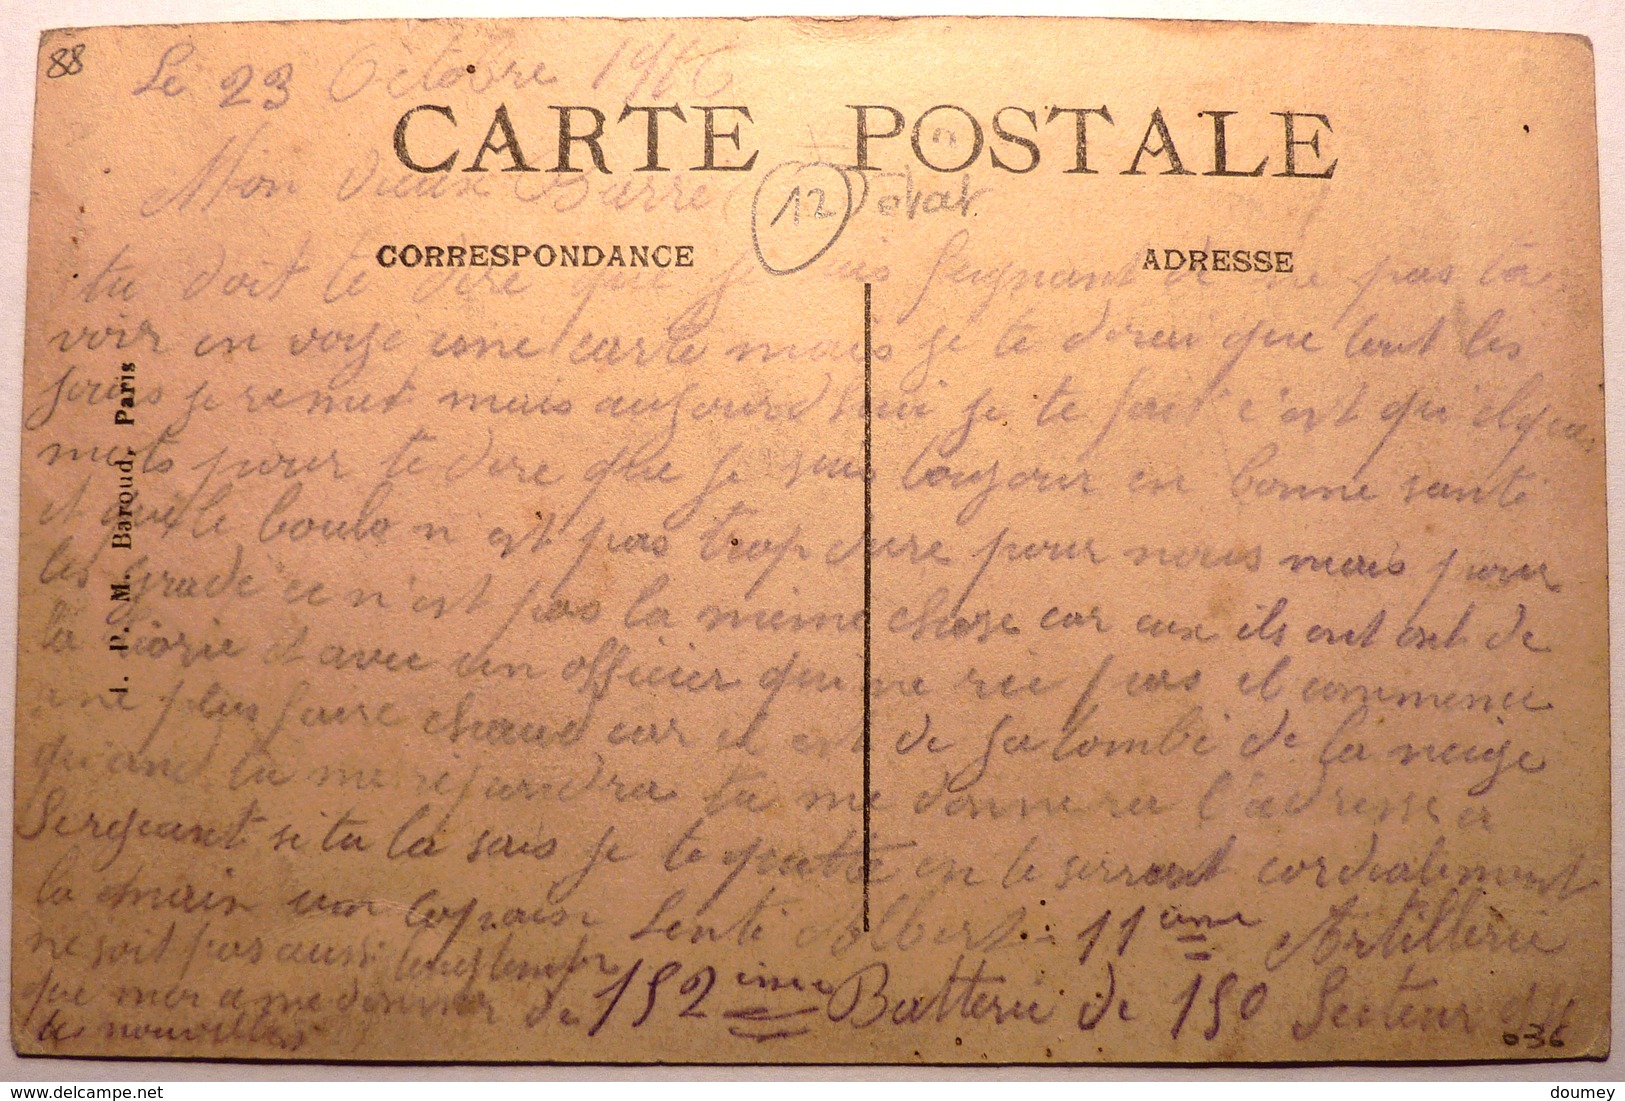 88
Le 23 Octobre 1916
CARTE POSTALE
Mon vieux Barre
12
CORRESPONDANCE
ADRESSE
tu doit te dire que je suis feignant de ne pas ta
voir en voyé une carte mais je te dirai que tout les
jours je remet mais aujourd'hui je te fait c'est quelques
mots pour te dire que je suis toujour en bonne santé
et que le boulo n'est pas trop dure pour nous mais pour
les gradé ce n'est pas la même chose car eux ils ont ont de
la téorie et avec un officier qui ne rie pas il commence
ane plus faire chaud car il est de ja tombé de la neige
quand tu me répondra tu me donnera l'adresse a
Sergeant si tu la sais je te quitte en te serrant cordialement
la main un copain Lenté Albert 11ème Artillerie
ne soit pas aussi longtemps
que moi a me donner de
tes nouvelles
152ème Batterie de 150 Secteur
036
I. P. M. Baroud, Paris
doumey